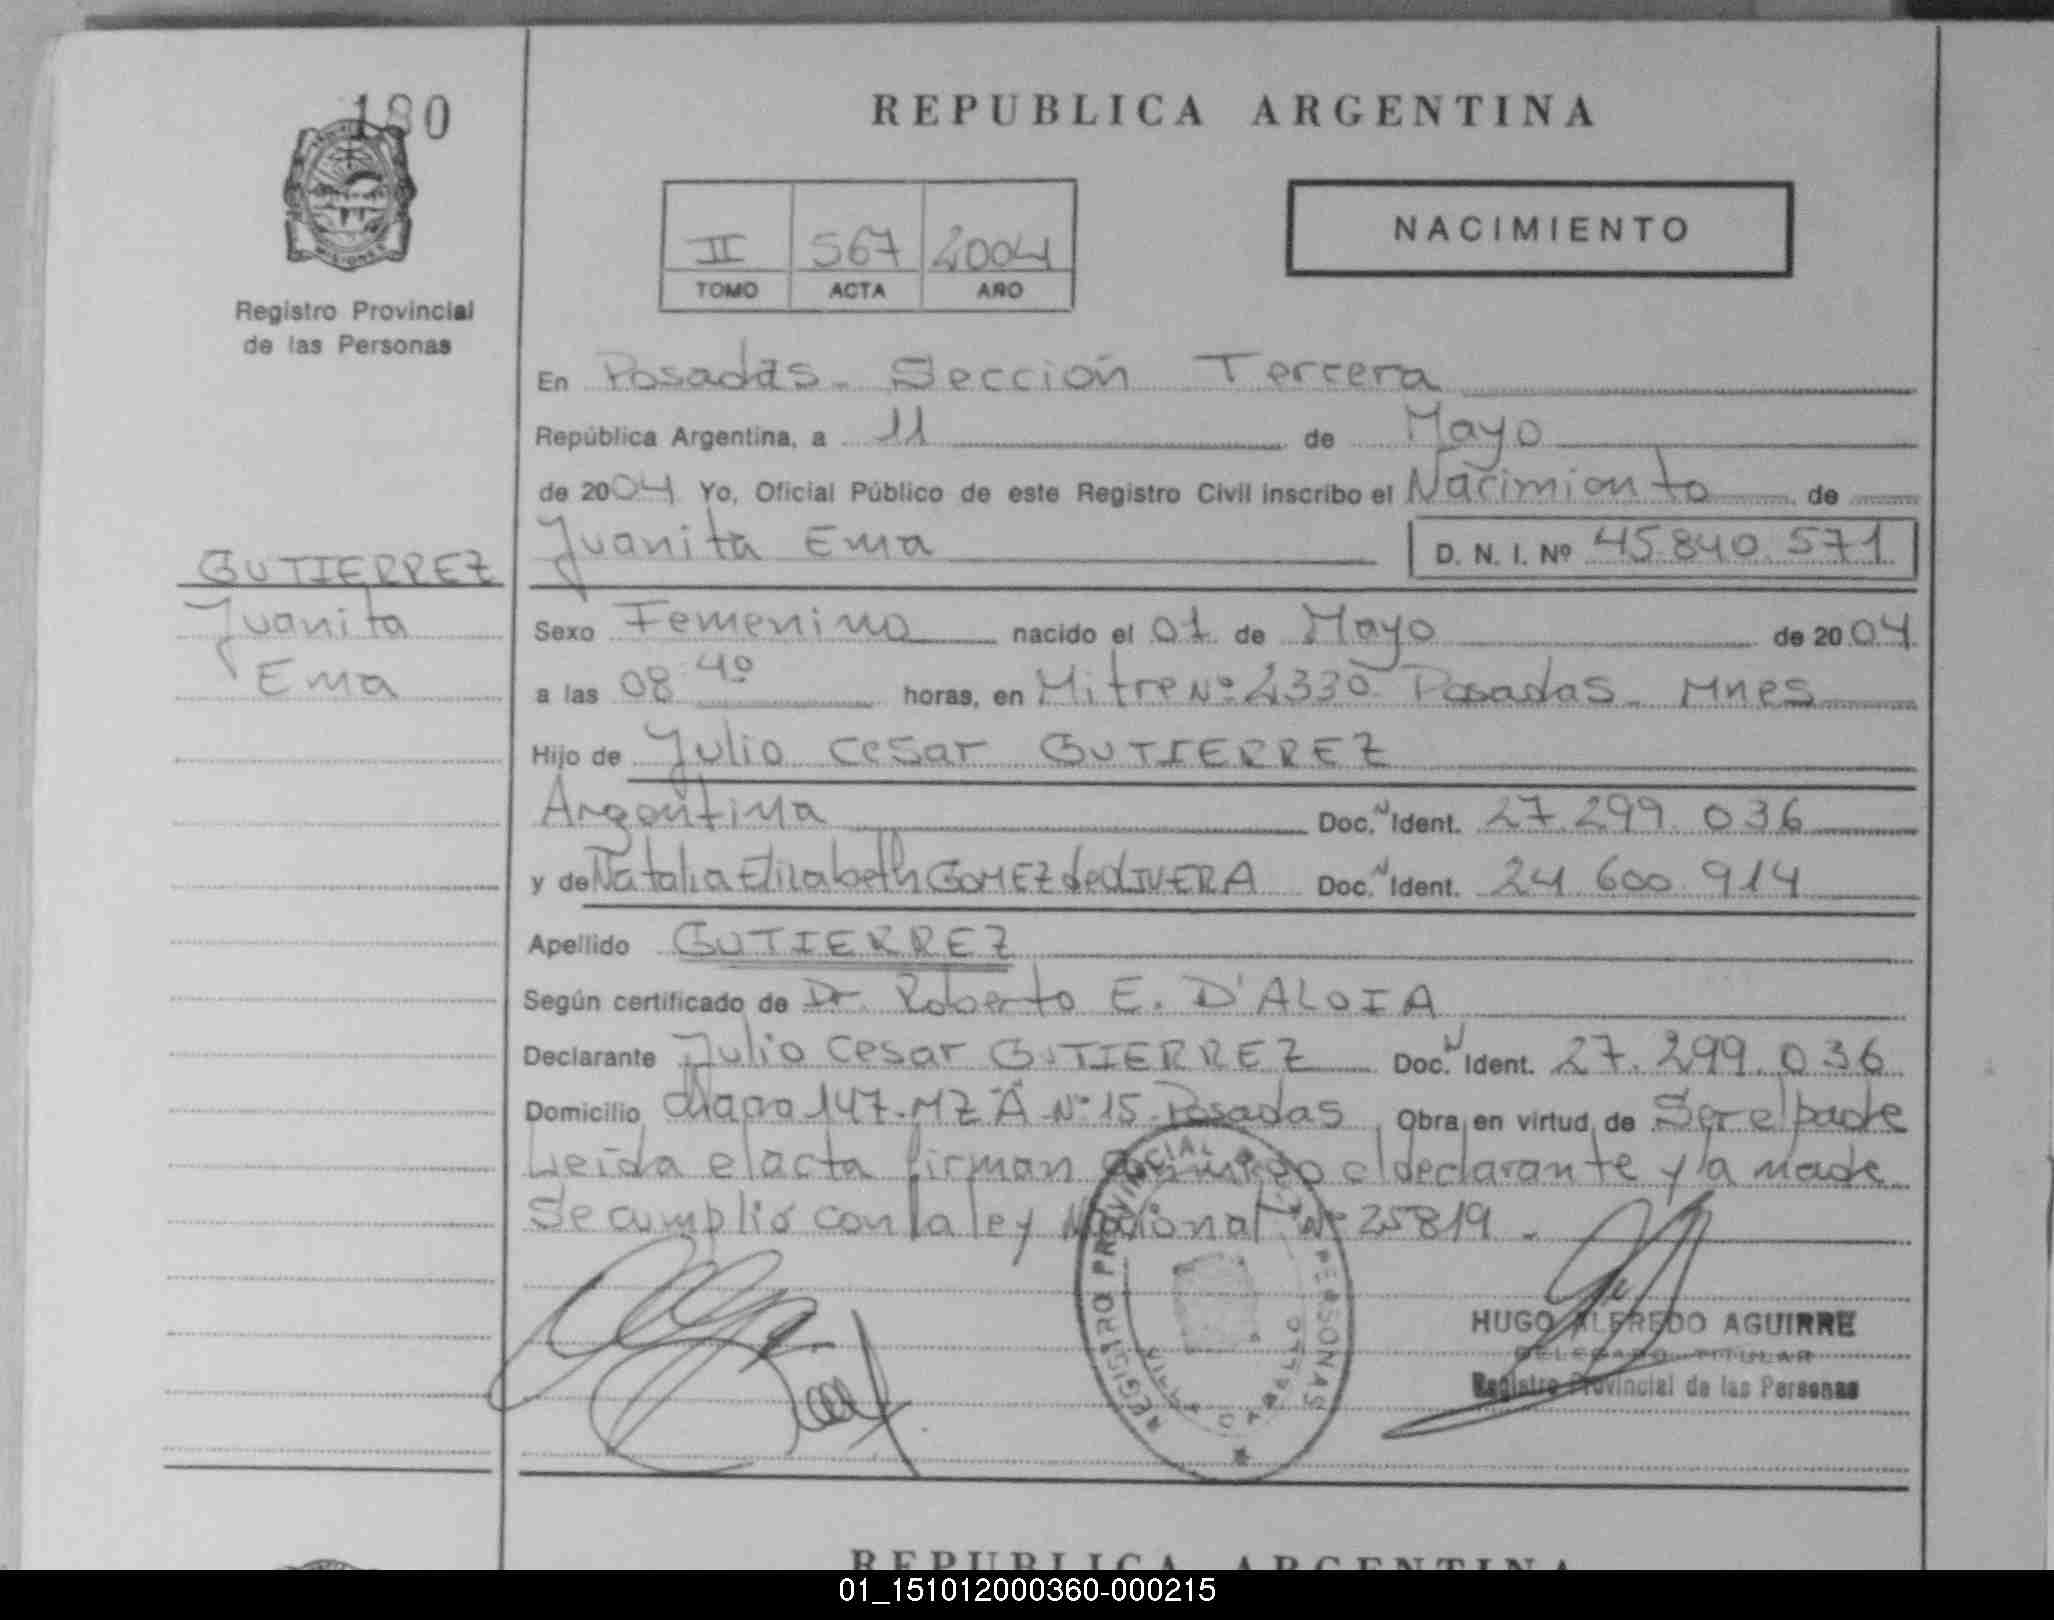 180
REPUBLICA ARGENTINA
II 567 2004
TOMO ACTA AÑO
NACIMIENTO
MISIONES
Registro Provincial
de las Personas
En Posadas. Sección Tercera
República Argentina, a 11 de Mayo
de 2004 Yo, Oficial Público de este Registro Civil inscribo el Nacimiento de
Juanita Ema D. N. I. Nº 45.840.571
GUTIERREZ
Juanita
Ema
Sexo Femenino nacido el 01 de Mayo de 2004
a las 08 40 horas, en Mitre Nº 2330 Posadas. Mnes
Hijo de Julio Cesar GUTIERREZ
Argentina Doc. N Ident. 27.299.036
y de Natalia Elizabeth GOMEZ de OLIVERA Doc. N Ident. 24.600.914
Apellido GUTIERREZ
Según certificado de Dr. Roberto E. D'ALOIA
Declarante Julio Cesar GUTIERREZ Doc. N Ident. 27.299.036
Domicilio 147. MZ A Nº 15. Posadas Obra en virtud de Ser el padre
Leida el acta firman conmigo el declarante y la madre
Se cumplió con la ley Nacional Nº 25819.
REGISTRO PROVINCIAL DE LAS PERSONAS
VILLA CABELLO
HUGO ALFREDO AGUIRRE
DELEGADO TITULAR
Registro Provincial de las Personas
REPUBLICA ARGENTINA
01_151012000360-000215